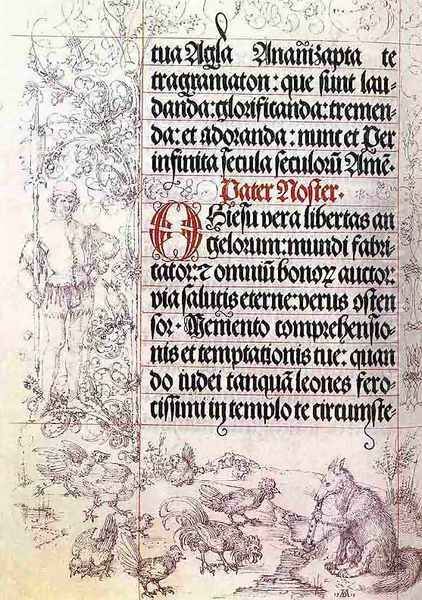 tua Agla Ananizapta te
tragramaton: que sunt lau-
danda: glorificanda: tremen-
da: et adoranda: nunc et per
infinita secula seculorū Amē·
Pater Noster·
O Hiesu vera libertas an
gelorum: mundi fabri-
cator: ⁊ omniū bonoꝝ auctor:
via salutis eterne: verus osten
sor· Memento comprehensio-
nis et temptationis tue: quan
do iudei tanquā leones fero-
cissimi in templo te circumste-
AD